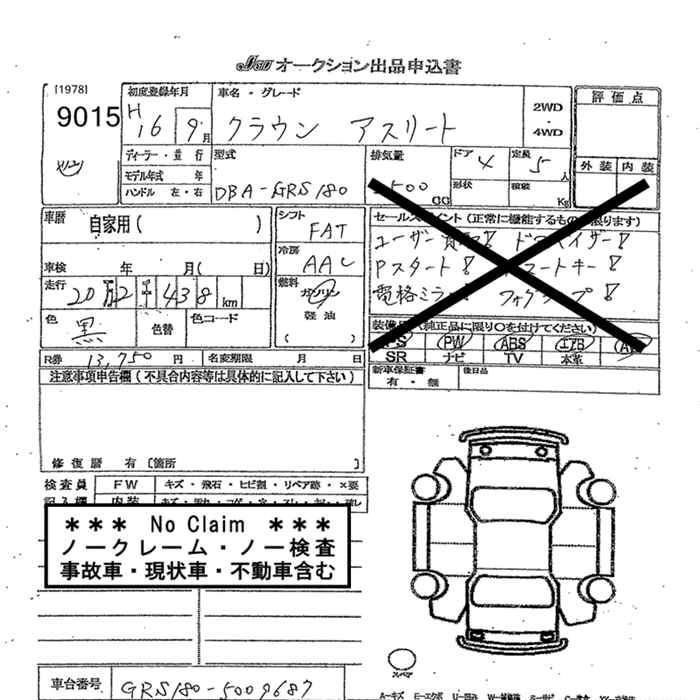 JAA オークション出品申込書
[1978]
9015
初度登録年月
H
16 9月
車名・グレード
クラウン アスリート
2WD
・
4WD
評価点
外装 内装
ディーラー・並行
モデル年式 年
ハンドル 左・右
型式
DBA-GRS180
排気量
500
CC
ドア
4
形状
定員
5人
積載
Kg
車歴
自家用( )
車検 年 月( 日)
走行
20万2千438km
色
黒
色替
色コード
シフト
FAT
冷房
AAC
燃料
ガソリン
軽油
( )
セールスポイント(正常に機能するものに限ります)
ユーザー買取! ドアバイザー!
Pスタート! スマートキー!
電格ミラー! フォグランプ!
装備品(純正品に限り○を付けてください)
PS PW ABS エアB AW
SR ナビ TV 本革
R券 13,750円 名変期限 月 日
新車保証書
有・無
後日品
注意事項申告欄(不具合内容等は具体的に記入して下さい)
修復歴 有〔箇所
検査員
記入欄
FW キズ・飛石・ヒビ割・リペア跡・×要
内装
*** No Claim ***
ノークレーム・ノー検査
事故車・現状車・不動車含む
スペア
車台番号 GRS180-5009687